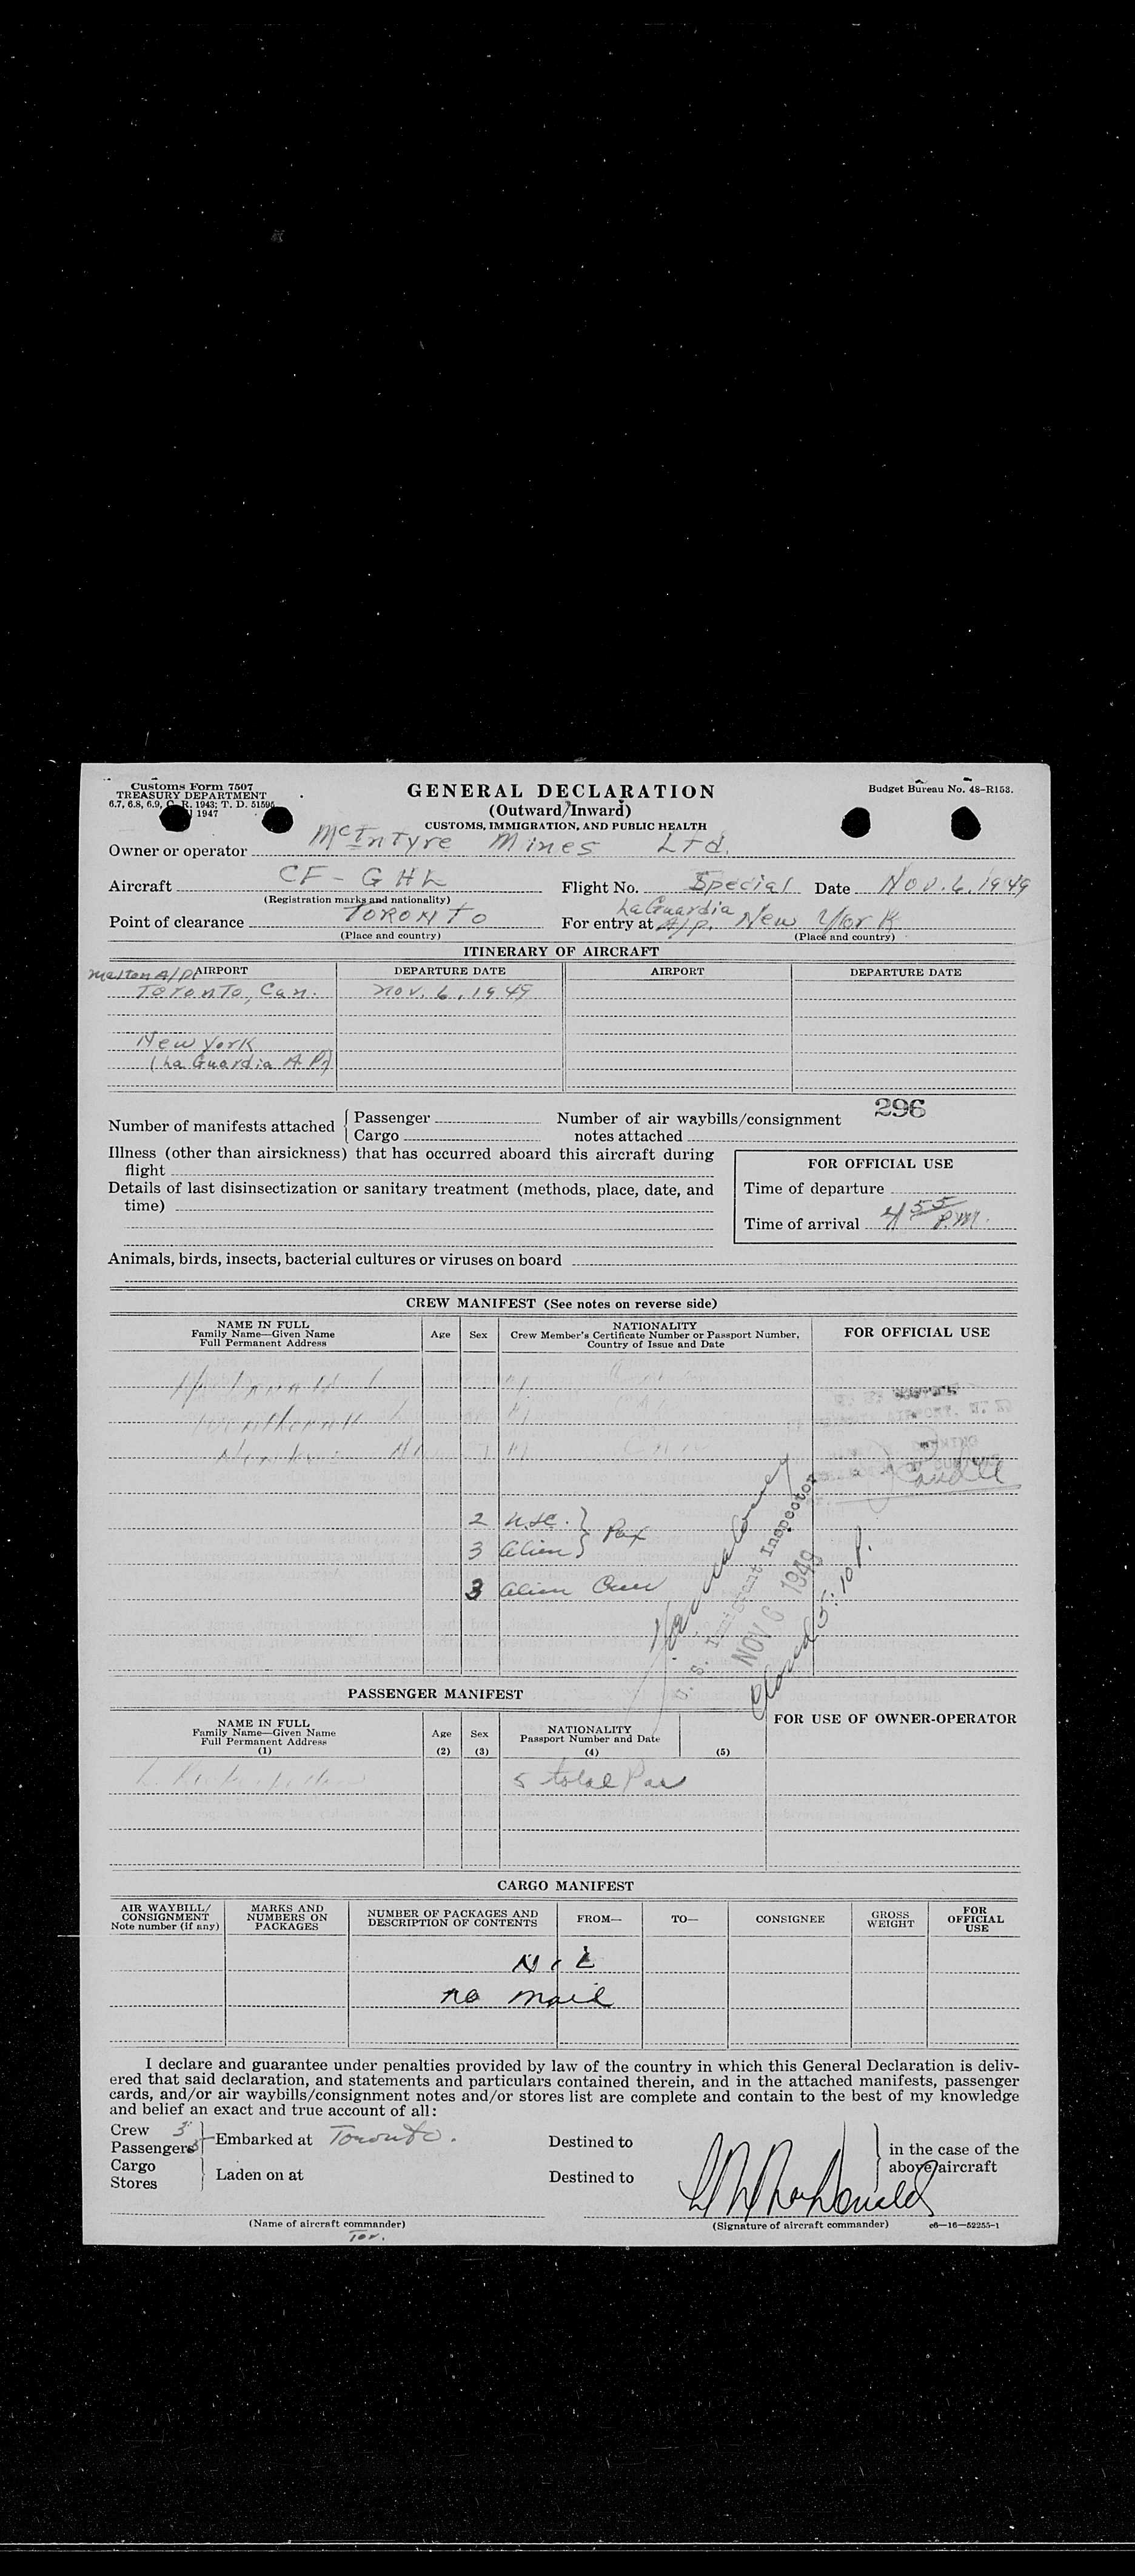 Customs Form 7507
TREASURY DEPARTMENT
6.7, 6.8, 6.9, C. R. 1943; T. D. 51595
1947
GENERAL DECLARATION
(Outward/Inward)
CUSTOMS, IMMIGRATION, AND PUBLIC HEALTH
Budget Bureau No. 48-R153.
Owner or operator McIntyre Mines Ltd.
Aircraft CF-GHL Flight No. Special Date Nov. 6, 1949
(Registration marks and nationality)
Point of clearance TORONTO For entry at LaGuardia A/p. New York
(Place and country) (Place and country)
ITINERARY OF AIRCRAFT
AIRPORT DEPARTURE DATE AIRPORT DEPARTURE DATE
Malton A/p
Toronto, Can. Nov. 6, 1949
New York
(La Guardia A.P.)
296
Number of manifests attached { Passenger
Cargo
Number of air waybills/consignment
notes attached
Illness (other than airsickness) that has occurred aboard this aircraft during
flight
Details of last disinsectization or sanitary treatment (methods, place, date, and
time)
FOR OFFICIAL USE
Time of departure
Time of arrival 4 55 P.M.
Animals, birds, insects, bacterial cultures or viruses on board
CREW MANIFEST (See notes on reverse side)
NAME IN FULL
Family Name—Given Name
Full Permanent Address
Age Sex
NATIONALITY
Crew Member's Certificate Number or Passport Number,
Country of Issue and Date
FOR OFFICIAL USE
2 U.S.C. } Pax
3 Alien }
3 Alien Crew
U. S. Immigrant Inspector
NOV 6 1949
Closed 5:10 P.
PASSENGER MANIFEST
NAME IN FULL
Family Name—Given Name
Full Permanent Address
(1)
Age
(2)
Sex
(3)
NATIONALITY
Passport Number and Date
(4)
(5)
FOR USE OF OWNER-OPERATOR
5 total Pax
CARGO MANIFEST
AIR WAYBILL/
CONSIGNMENT
Note number (if any)
MARKS AND
NUMBERS ON
PACKAGES
NUMBER OF PACKAGES AND
DESCRIPTION OF CONTENTS
FROM—
TO—
CONSIGNEE
GROSS
WEIGHT
FOR
OFFICIAL
USE
NIL
no mail
I declare and guarantee under penalties provided by law of the country in which this General Declaration is deliv-
ered that said declaration, and statements and particulars contained therein, and in the attached manifests, passenger
cards, and/or air waybills/consignment notes and/or stores list are complete and contain to the best of my knowledge
and belief an exact and true account of all:
Crew 3
Passengers 5 } Embarked at Toronto. Destined to
Cargo
Stores } Laden on at Destined to
in the case of the
above aircraft
MacDonald
(Name of aircraft commander) (Signature of aircraft commander) c6—16—52255-1
Tor.